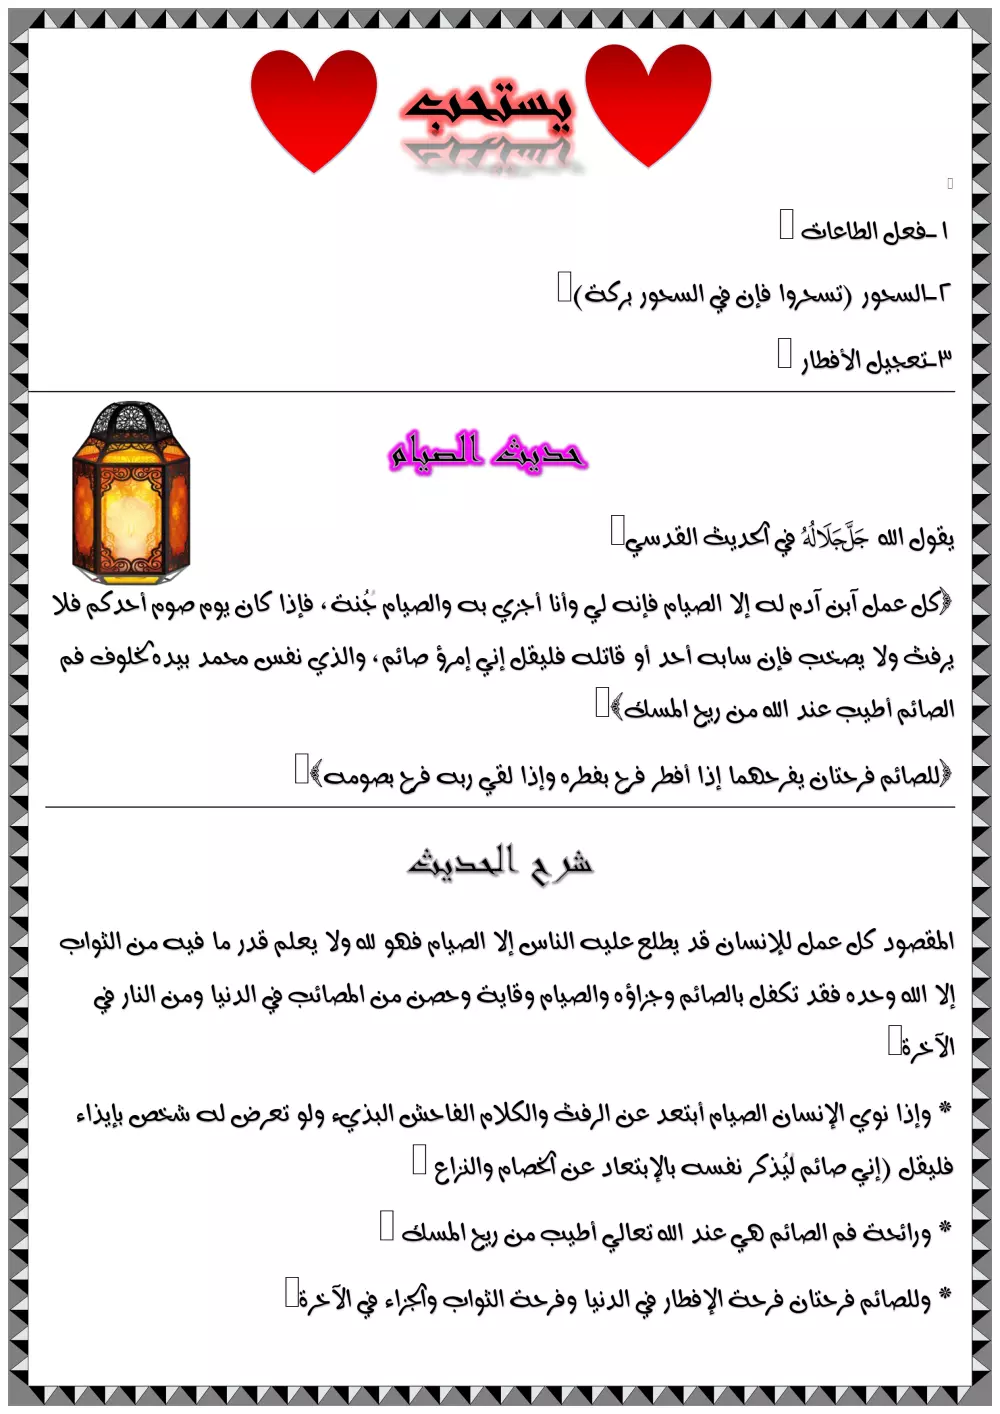 يستحب
١-فعل الطاعات
٢-السحور (تسحروا فإن في السحور بركة)
٣-تعجيل الأفطار
حديث الصيام
يقول الله جَلَّ جَلَالُهُ في الحديث القدسي
﴿كل عمل آبن آدم له إلا الصيام فإنه لي وأنا أجزي به والصيام جُنة، فإذا كان يوم صوم أحدكم فلا
يرفث ولا يصخب فإن سابه أحد أو قاتله فليقل إني إمرؤ صائم، والذي نفس محمد بيده لخلوف فم
الصائم أطيب عند الله من ريح المسك﴾
﴿للصائم فرحتان يفرحهما إذا أفطر فرح بفطره وإذا لقي ربه فرح بصومه﴾
شرح الحديث
المقصود كل عمل للإنسان قد يطلع عليه الناس إلا الصيام فهو لله ولا يعلم قدر ما فيه من الثواب
إلا الله وحده فقد تكفل بالصائم وجزاؤه والصيام وقاية وحصن من المصائب في الدنيا ومن النار في
الآخرة
* وإذا نوي الإنسان الصيام أبتعد عن الرفث والكلام الفاحش البذيء ولو تعرض له شخص بإيذاء
فليقل (إني صائم لَيُذكر نفسه بالإبتعاد عن الخصام والنزاع
* ورائحة فم الصائم هي عند الله تعالي أطيب من ريح المسك
* وللصائم فرحتان فرحة الإفطار في الدنيا وفرحة الثواب والجزاء في الآخرة